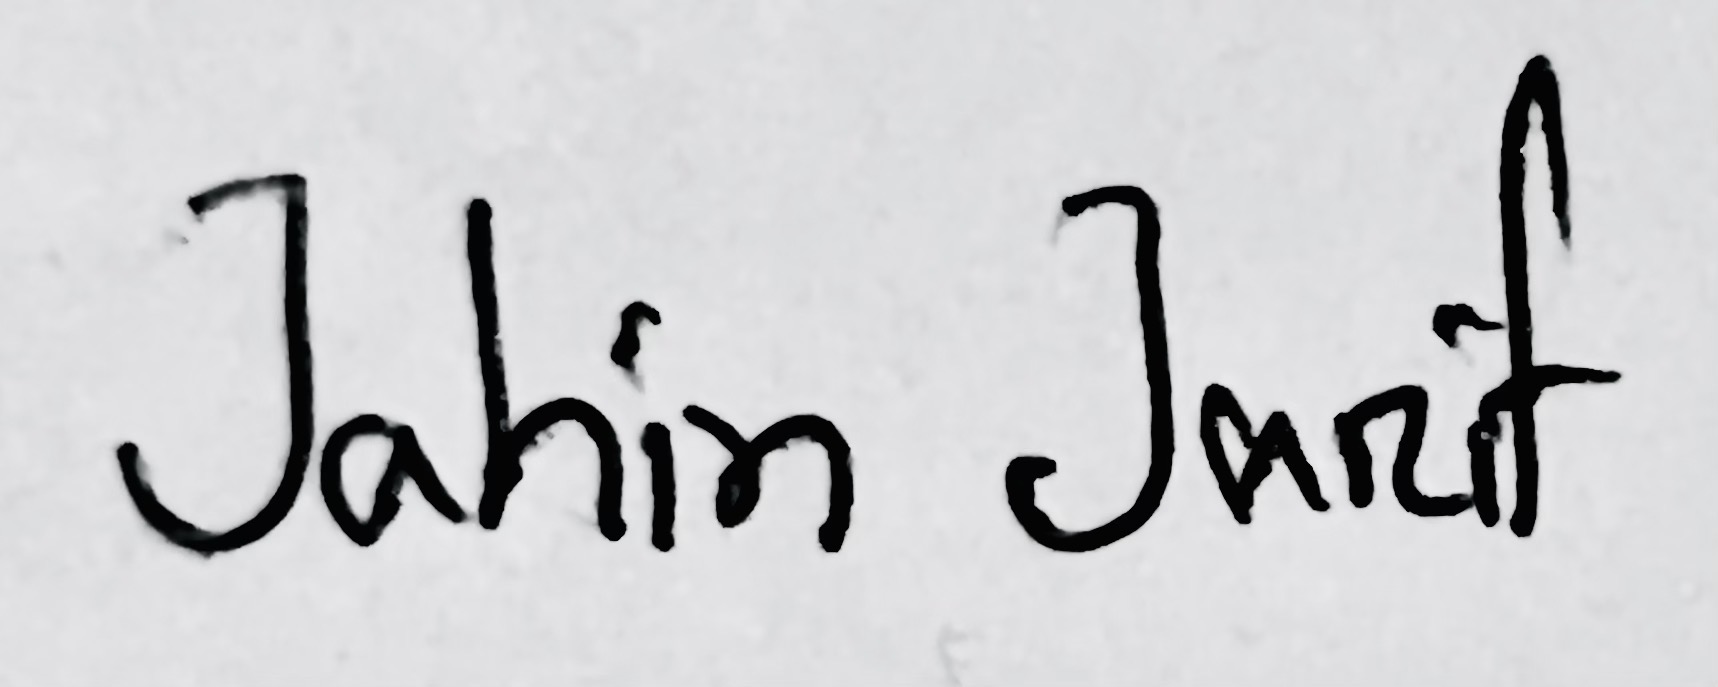 Jahin Jarif